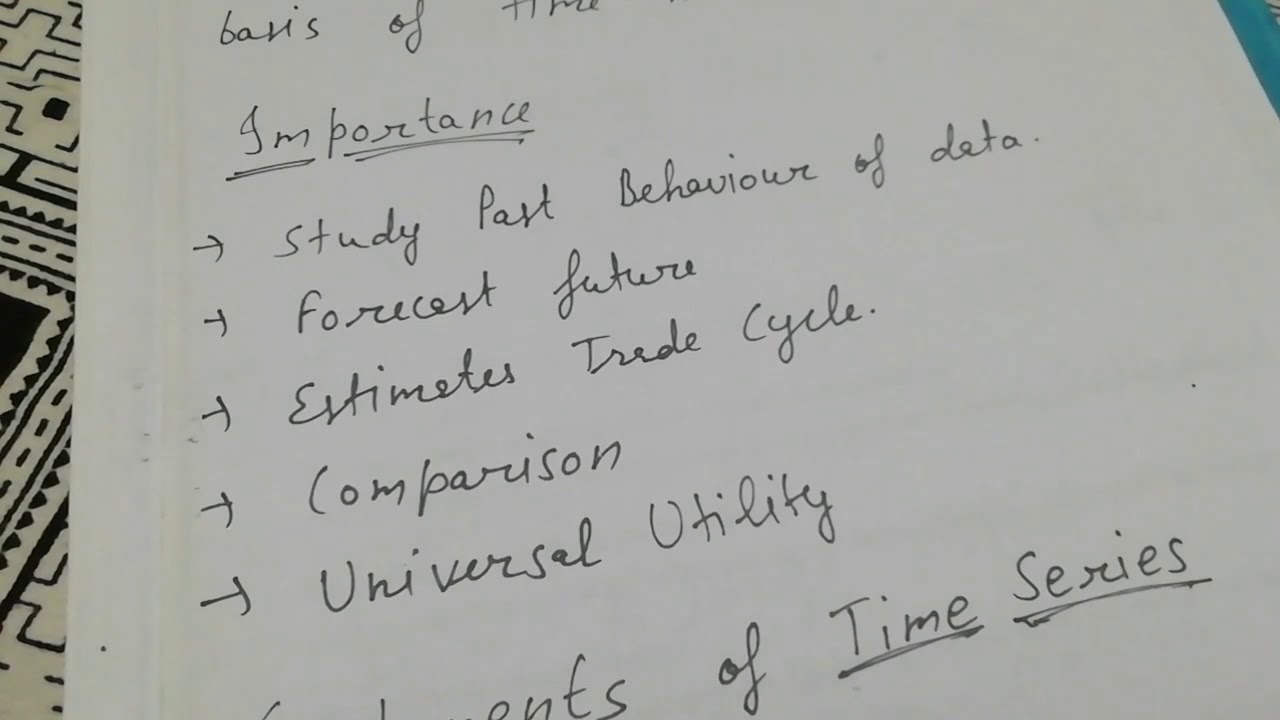 basis of time
Importance
→ Study Past Behaviour of data.
→ Forecast future
→ Estimates Trade Cycle.
→ Comparison
→ Universal Utility
of Time Series